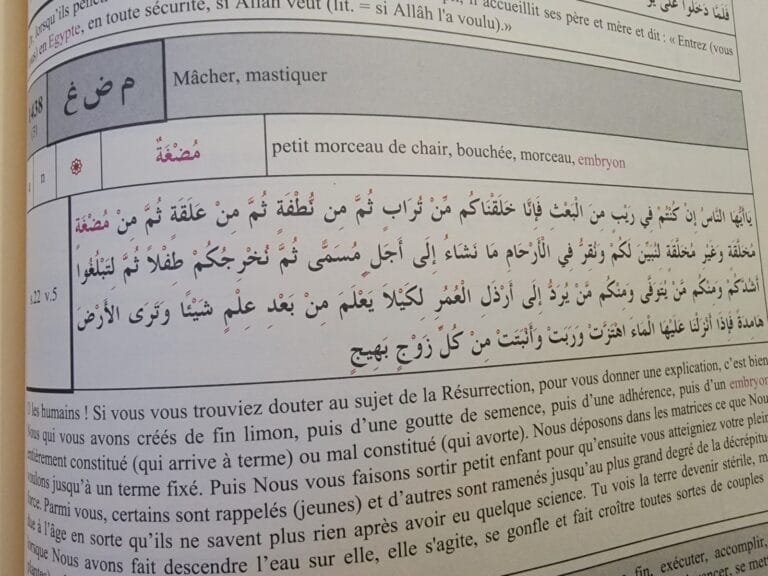 فَلَمَّا دَخَلُوا عَلَى
lorsqu'ils il accueillit ses père et mère et dit : « Entrez (vous
en Egypte, en toute sécurité, si Allâh veut (lit. = si Allâh l'a voulu).»
1438 م ض غ Mâcher, mastiquer
(3)
n مُضْغَةٌ petit morceau de chair, bouchée, morceau, embryon
يَاأَيُّهَا النَّاسُ إِن كُنْتُمْ فِي رَيْبٍ مِنَ الْبَعْثِ فَإِنَّا خَلَقْنَاكُم مِّنْ تُرَابٍ ثُمَّ مِن نُّطْفَةٍ ثُمَّ مِنْ عَلَقَةٍ ثُمَّ مِنْ مُضْغَةٍ
مُخَلَّقَةٍ وَغَيْرِ مُخَلَّقَةٍ لِنُبَيِّنَ لَكُمْ وَنُقِرُّ فِي الْأَرْحَامِ مَا نَشَاءُ إِلَى أَجَلٍ مُسَمًّى ثُمَّ نُخْرِجُكُمْ طِفْلًا ثُمَّ لِتَبْلُغُوا
s.22 v.5 أَشُدَّكُمْ وَمِنكُم مَّنْ يُتَوَفَّى وَمِنكُم مَّنْ يُرَدُّ إِلَى أَرْذَلِ الْعُمُرِ لِكَيْلَا يَعْلَمَ مِنْ بَعْدِ عِلْمٍ شَيْئًا وَتَرَى الْأَرْضَ
هَامِدَةً فَإِذَا أَنْزَلْنَا عَلَيْهَا الْمَاءَ اهْتَزَّتْ وَرَبَتْ وَأَنْبَتَتْ مِنْ كُلِّ زَوْجٍ بَهِيجٍ
les humains ! Si vous vous trouviez douter au sujet de la Résurrection, pour vous donner une explication, c'est bien
Nous qui vous avons créés de fin limon, puis d'une goutte de semence, puis d'une adhérence, puis d'un embryon
entièrement constitué (qui arrive à terme) ou mal constitué (qui avorte). Nous déposons dans les matrices ce que Nous
voulons jusqu'à un terme fixé. Puis Nous vous faisons sortir petit enfant pour qu'ensuite vous atteigniez votre plein
force. Parmi vous, certains sont rappelés (jeunes) et d'autres sont ramenés jusqu'au plus grand degré de la décrépitu
due à l'âge en sorte qu'ils ne savent plus rien après avoir eu quelque science. Tu vois la terre devenir stérile, m
lorsque Nous avons fait descendre l'eau sur elle, elle s'agite, se gonfle et fait croître toutes sortes de couples
fin, exécuter, accomplir,
se met